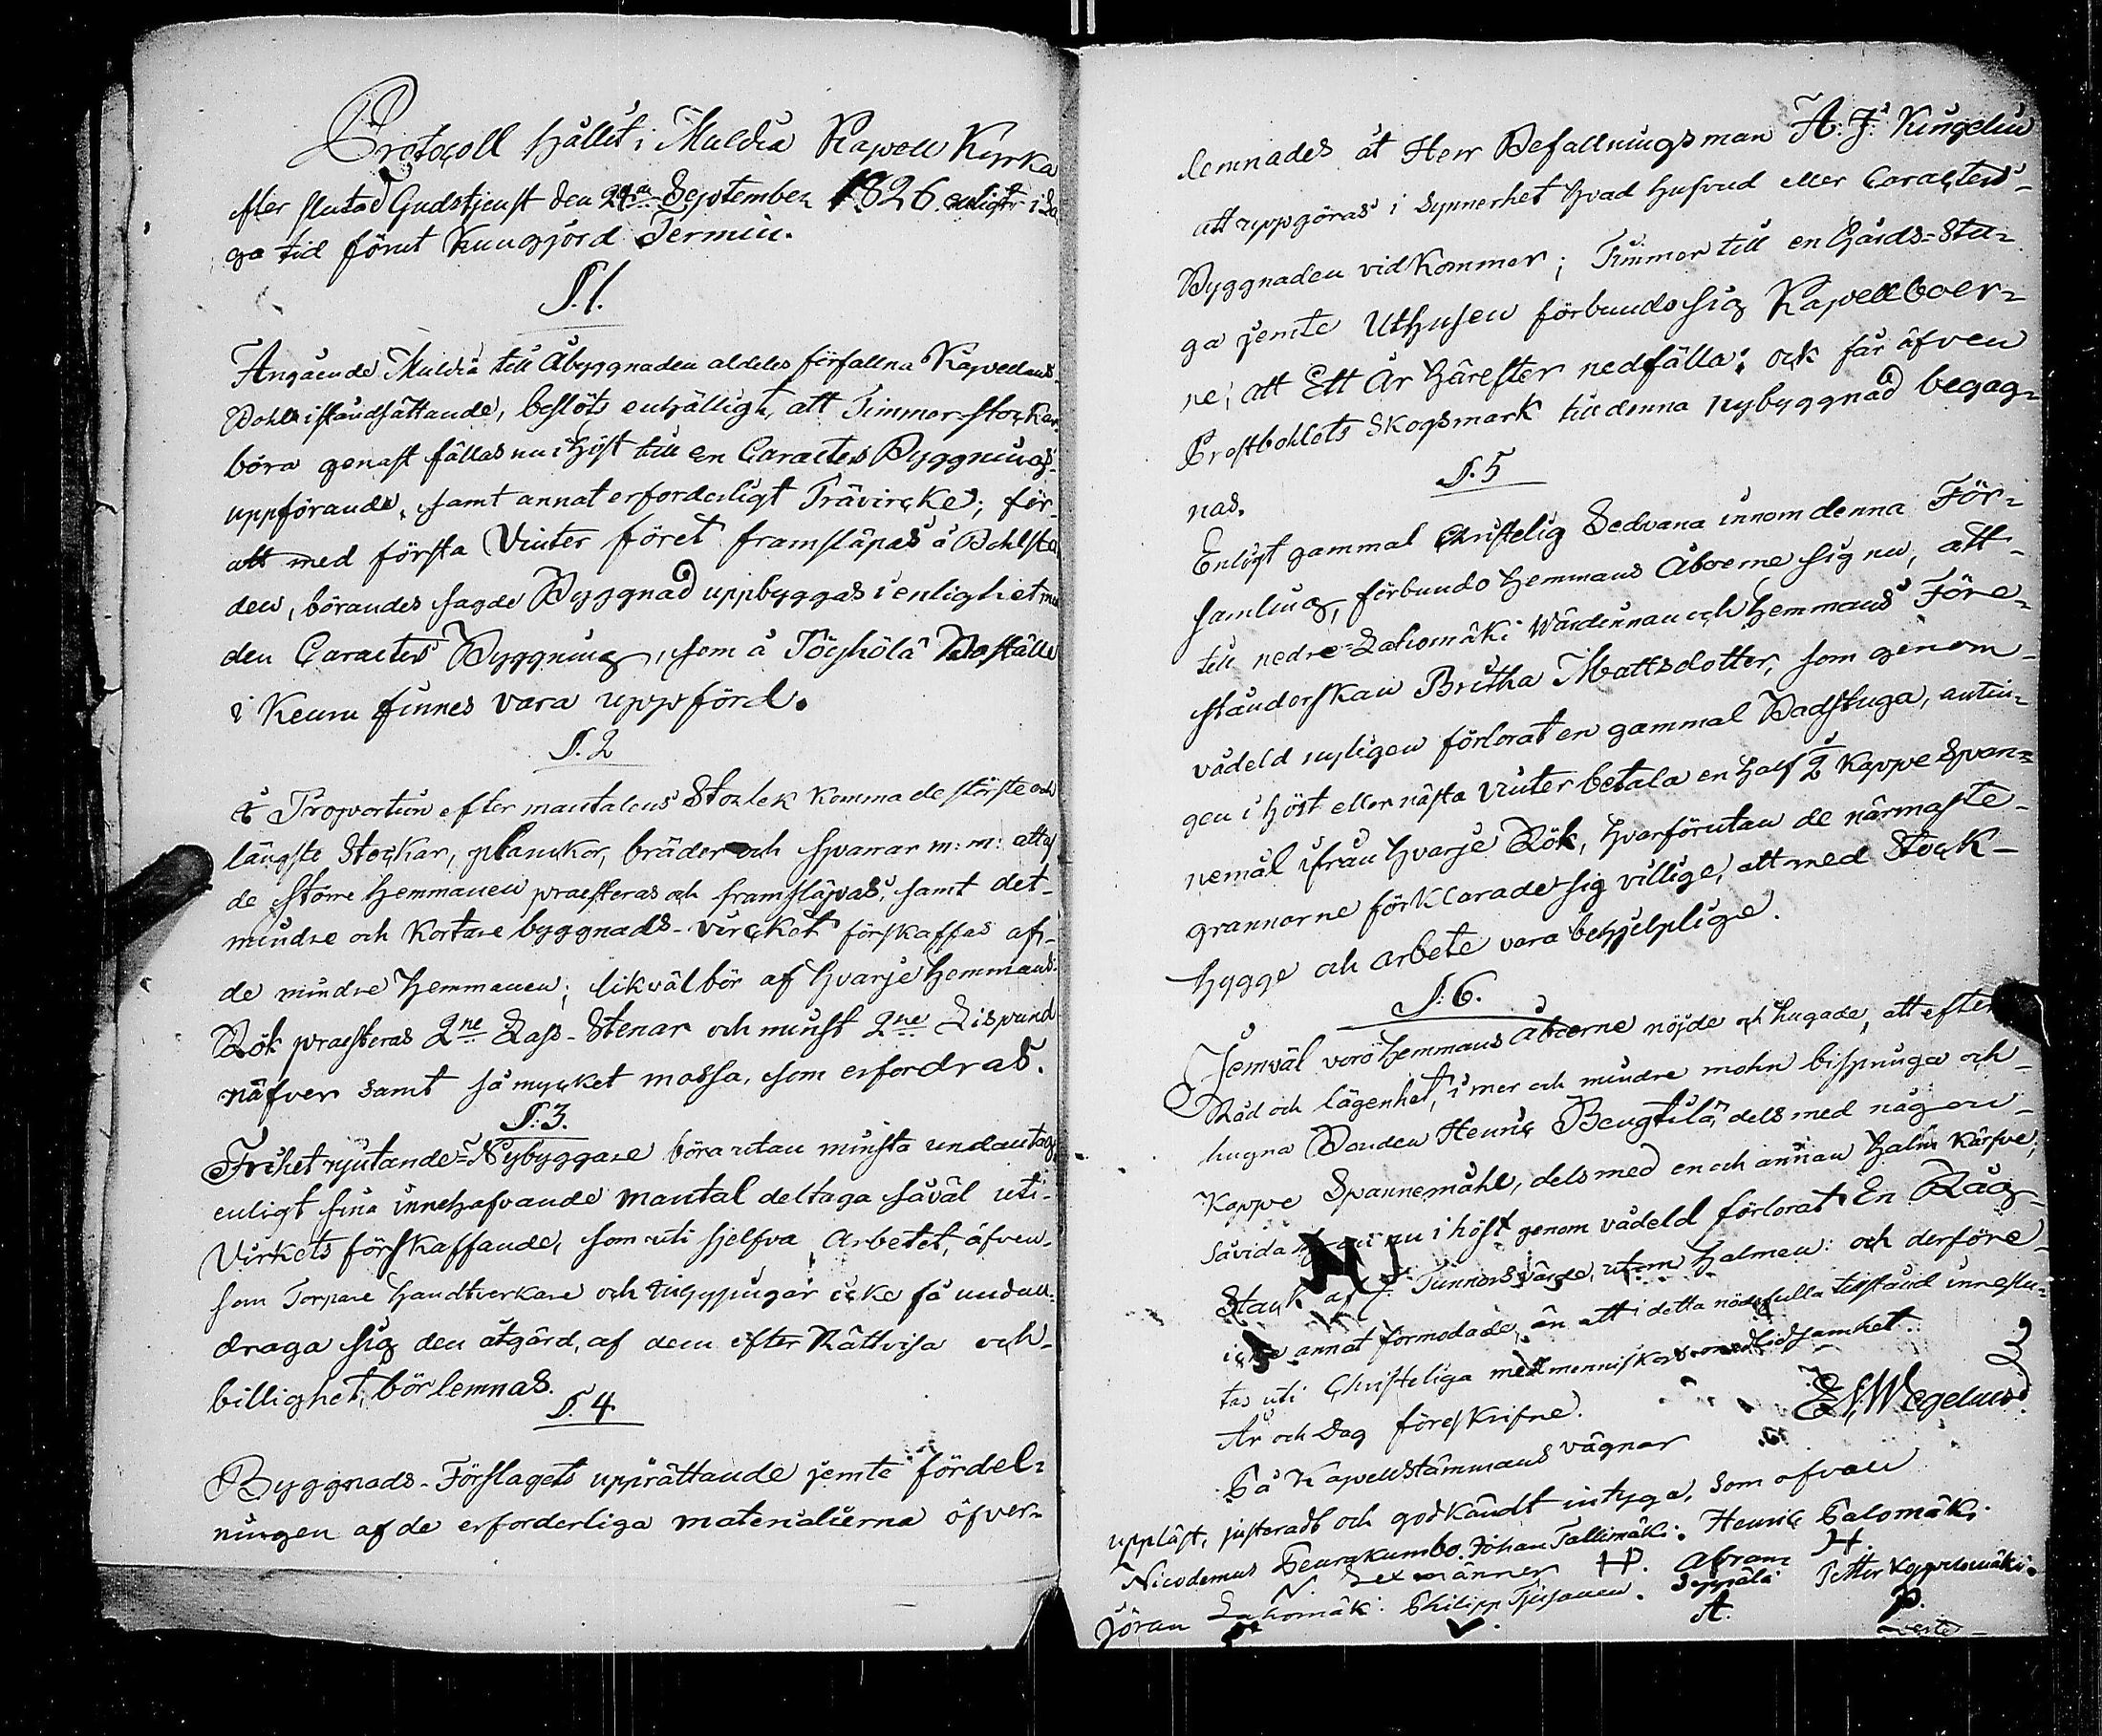 Protocoll hållit i Muldia Kapell Kyrka
efter slutad Gudstjenst den 24de September 1826. enligt i La
ga tid förut kungjord Termin.
§. 1.
Angående Muldia till Åbyggnaden aldeles förfallna Kapellans-
Bohls iståndsättande, beslöts enhälligt, att Timmer-stockar
böra genast fällas nu i höst till en Caracters Byggnings-
uppförande, samt annat erforderligt Trävircke; för-
att med första Vinter föret framsläpas å Bohlsta
den, börandes sagde Byggnad uppbyggas i enlighet med
den Caracters Byggning, som å Töyhölä Boställe
i Keuru finnes vara uppförd.
§. 2
I Proportion efter mantalens Storlek komma de största och
längste Stockar, planckor, bräder och sparrar m: m: att af
de större Hemmanen praesteras och framsläpas, samt det-
mindre och kortare byggnads-vircket förskaffas af-
de mindre Hemmanen; likväl bör af hvarje Hemmans-
Rök praesteras 2ne Lass-Stenar och minst 2ne Lispund
näfver samt så mycket mossa, som erfordras.
§: 3.
Frihet njutande-Nybyggare böra utan minsta undantag
enligt sina innehafvande mantal deltaga såväl uti-
Virkets förskaffande, som uti sjelfva Arbetet, äfven-
som Torpare Handtverkare och Inhysingar icke få undan-
draga sig den åtgärd, af dem efter Rättvisa och-
billighet, bör lemnas.
§. 4
Byggnads-Förslagets upprättande jemte fördel-
ningen af de erforderliga materialierna öfver-
lemnades åt Herr Befallningsman A: J: Kingelin
att uppgöras i synnerhet hvad hufvud eller Caracters-
Byggnaden vidkommer; Timmer till en Gårds-Stu-
ga jemte Uthusen förbundo sig Kapellboer-
ne, att Ett År härefter nedfälla; och får äfven
Prestbohlets Skogsmark till denna nybyggnad begag-
nas.
§. 5
Enligt gammal Christelig Sedvana innom denna För-
samling, förbundo Hemmans Åboerne sig nu, att-
till nedre-Lahomäki Wärdinnan och Hemmans Före-
ståndorskan Britha Mattsdotter, som genom-
vådeld nyligen förlorat en gammal Badstuga, antin-
gen i höst eller nästa Vinter betala en half 2 Kappe Span-
nemål ifrån hvarje Rök, hvarförutan de närmaste-
grannarne förklarade sig villige, att med Stock-
hygge och arbete vara behjelplige.
§: 6.
Jemväl voro Hemmans Åboerne nöjde och hugade, att efter
Råd och lägenhet, i mer och mindre mohn bispringa och-
hugna Bonden Henric Bengtilä, dels med någon-
Kappe Spannemåhl, dels med en och annan halm kärfve,
såvida nu i höst genom vådeld förlorat En Råg-
Stack af 7. Tunnors värde, utom Halmen: och derföre-
icke annat förmodade, än att i detta nödfulla tillstånd inneslu-
tas uti Christeliga medmenniskors medlidsamhet.
År och Dag föreskrifne.
E. N. Wegelius
På Kapellstämmans vägnar
uppläst, justeradt och godkändt intyga, som ofvan
Nicodemus Peurakumbo. Johan Tallimäki. Henric Salomäki.
N. Sexmänner H. Abram H.
Jöran Lahomäki. Philipp Tjihonen. Seppälä Petter Koppelomäki.
A. P.